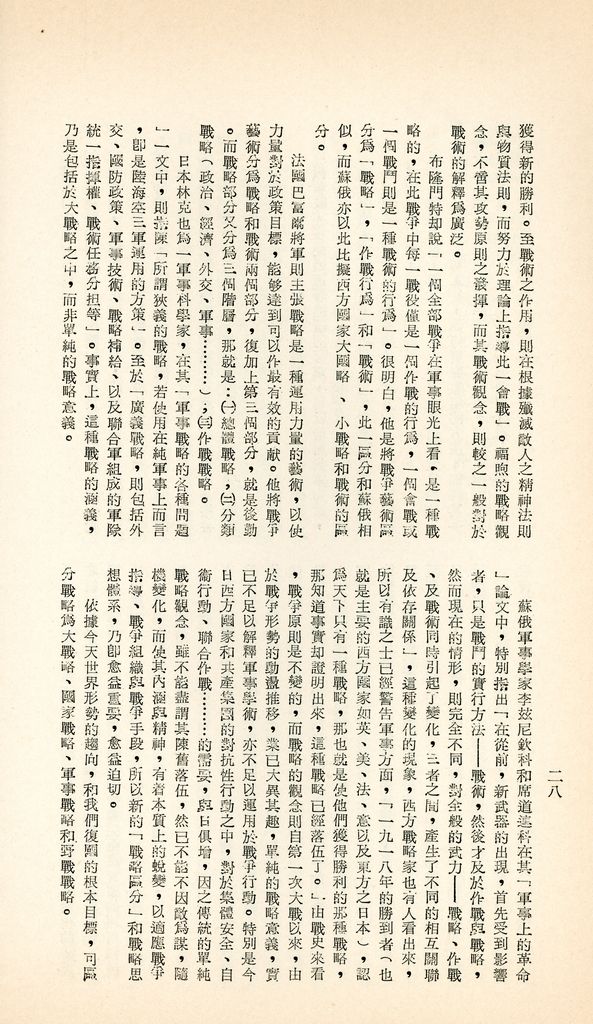 獲得新的勝利。至戰術之作用，則在根據殲滅敵人之精神法則
與物質法則，而努力於理論上指導此一會戰」。福煦的戰略觀
念，不啻其攻勢原則之發揮，而其戰術觀念，則較之一般對於
戰術的解釋爲廣泛。
布隆門特却說「一個全部戰爭在軍事眼光上看，是一種戰
略的，在此戰爭中每一戰役僅是一個作戰的行爲，一個會戰或
一個戰鬥則是一種戰術的行爲」。很明白，他是將戰爭藝術區
分爲「戰略」，「作戰行爲」和「戰術」，此一區分和蘇俄相
似，而蘇俄亦以此比擬西方國家大國略、小戰略和戰術的區
分。
法國巴富爾將軍則主張戰略是一種運用力量的藝術，以使
力量對於政策目標，能夠達到可以作最有效的貢獻。他將戰爭
藝術分爲戰略和戰術兩個部分，復加上第三個部分，就是後勤
。而戰略部分又分爲三個階層，那就是：㈠總體戰略，㈡分類
戰略（政治、經濟、外交、軍事………）；㈢作戰戰略。
日本林克也爲一軍事科學家，在其「軍事戰略的各種問題
」一文中，則指陳「所謂狹義的戰略，若使用在純軍事上而言
，卽是陸海空三軍運用的方策」。至於「廣義戰略，則包括外
交、國防政策、軍事技術、戰略補給、以及聯合軍組成的軍隊
統一指揮權、戰術任務分担等」。事實上，這種戰略的涵義，
乃是包括於大戰略之中，而非單純的戰略意義。
蘇俄軍事學家李玆尼欽科和席道連科在其「軍事上的革命
」論文中，特別指出「在從前，新武器的出現，首先受到影響
者，只是戰鬥的實行方法——戰術，然後才及於作戰與戰略，
然而現在的情形，則完全不同，對全般的武力——戰略、作戰
、及戰術同時引起了變化，三者之間，產生了不同的相互關聯
及依存關係」，這種變化的現象，西方戰略家也有人看出來，
所以有識之士已經警告軍事方面，「一九一八年的勝到者（也
就是主要的西方國家如英、美、法、意以及東方之日本），認
爲天下只有一種戰略，那也就是使他們獲得勝利的那種戰略，
那知道事實却證明出來，這種戰略已經落伍了。」由戰史來看
，戰爭原則是不變的，而戰略的觀念則自第一次大戰以來，由
於戰爭形勢的動盪推移，業已大異其趣，單純的戰略意義，實
已不足以解釋軍事學術，亦不足以運用於戰爭行動。特別是今
日西方國家和共產集團的對抗性行動之中，對於集體安全、自
衞行動、聯合作戰………的需要，與日俱增，因之傳統的單純
戰略觀念，雖不能盡謂其陳舊落伍，然已不能不因敵爲謀，隨
機變化，而使其內涵與精神，有着本質上的蛻變，以適應戰爭
指導、戰爭組織與戰爭手段，所以新的「戰略區分」和戰略思
想體系，乃卽愈益重要，愈益迫切。
依據今天世界形勢的趨向，和我們復國的根本目標，可區
分戰略爲大戰略、國家戰略、軍事戰略和野戰戰略。
二八